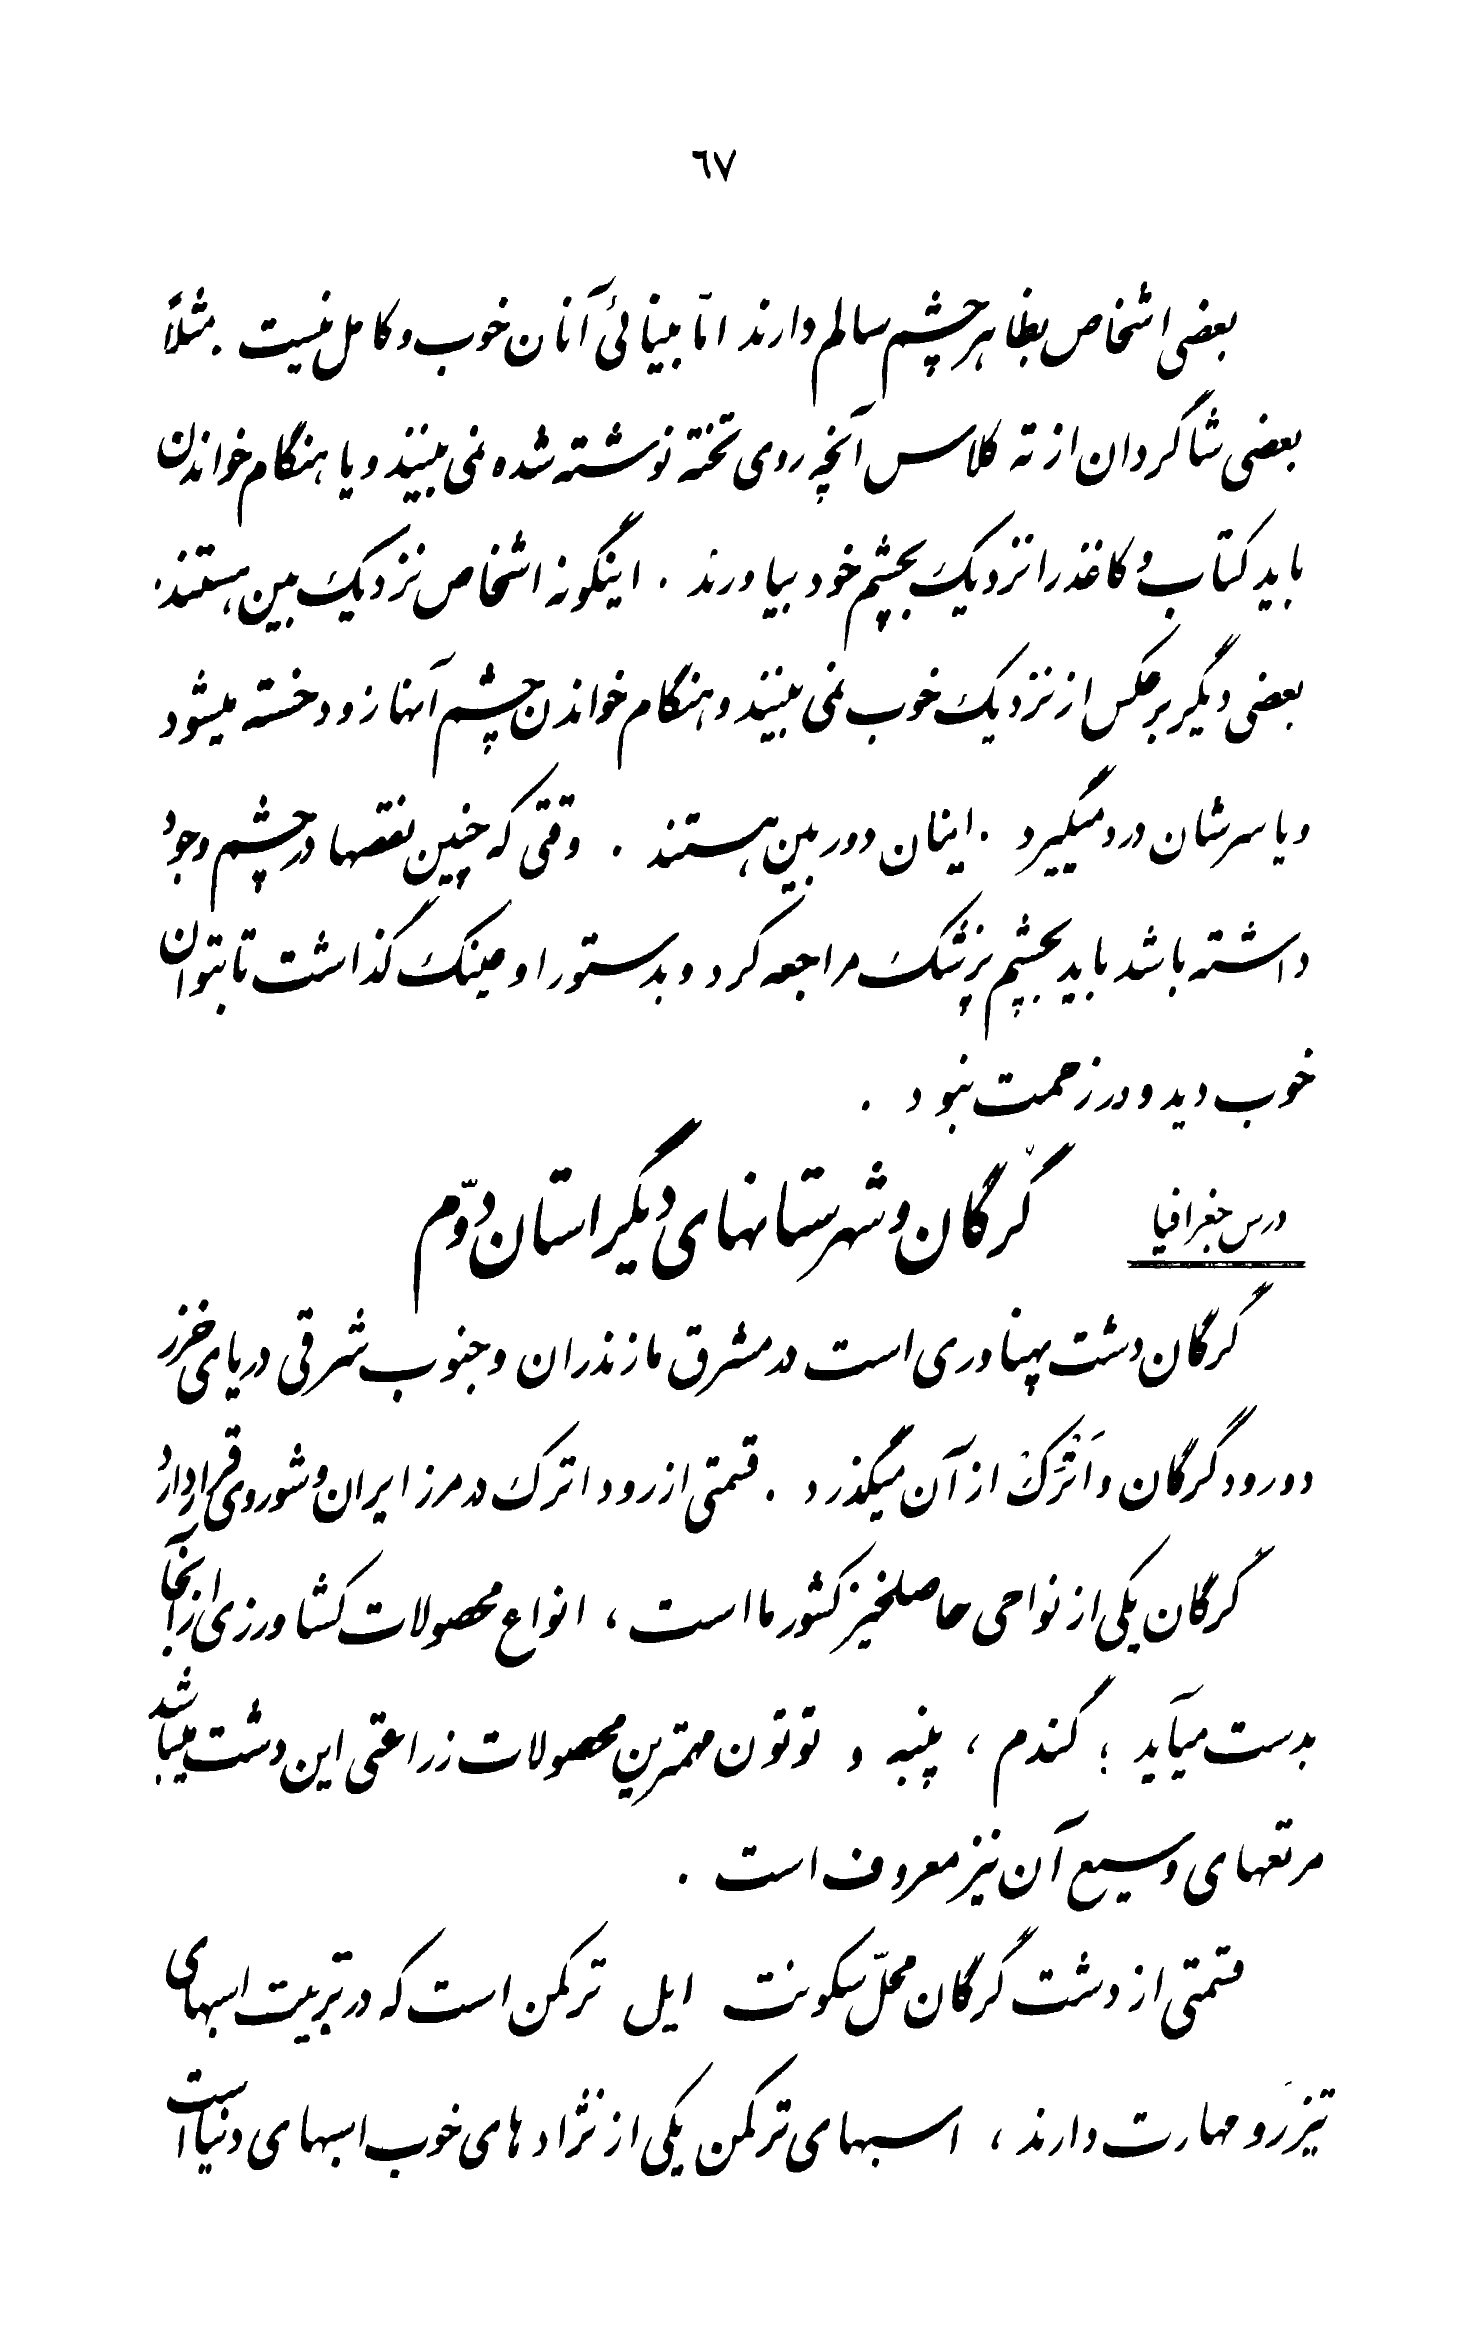 ٦٧
بعضی اشخاص بظاهر چشم سالم دارند امّا بینائی آنان خوب و کامل نیست . مثلاً
بعضی شاگردان از ته کلاس آنچه روی تخته نوشته شده نمی بینند و یا هنگام خواندن
باید کتاب و کاغذ را نزدیک بچشم خود بیاورند . اینگونه اشخاص نزدیک بین هستند .
بعضی دیگر برعکس از نزدیک خوب نمی بینند و هنگام خواندن چشم آنها زود خسته میشود
و یا سرشان درد میگیرد . اینان دوربین هستند . وقتی که چنین نقصها در چشم وجود
داشته باشد باید بچشم پزشک مراجعه کرد و بدستور او عینک گذاشت تا بتوان
خوب دید و در زحمت نبود .
درس جغرافیا گرگان و شهرستانهای دیگر استان دوّم
گرگان دشت پهناوری است در مشرق مازندران و جنوب شرقی دریای خزر
دو رود گرگان و اَتْرَکْ از آن میگذرد . قسمتی از رود اترک در مرز ایران و شوروی قرار دارد
گرگان یکی از نواحی حاصلخیز کشور ما است ، انواع محصولات کشاورزی از آنجا
بدست میآید ؛ گندم ، پنبه و توتون مهمترین محصولات زراعتی این دشت میباشد
مرتعهای وسیع آن نیز معروف است .
قسمتی از دشت گرگان محلّ سکونت ایل ترکمن است که در تربیت اسبهای
تیزرَو مهارت دارند ، اسبهای ترکمن یکی از نژادهای خوب اسبهای دنیا است